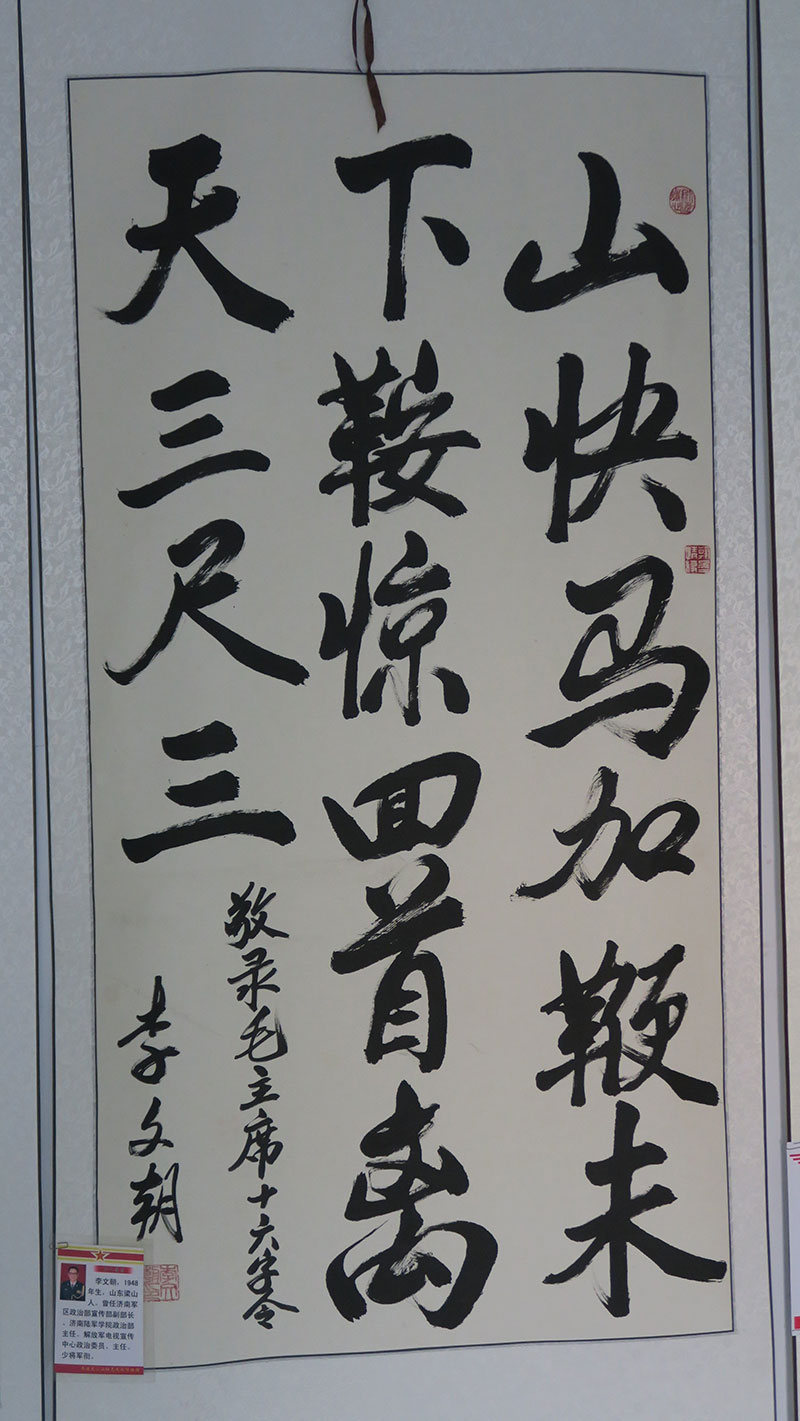 山快马加鞭未
下鞍惊回首离
天三尺三
敬录毛主席十六字令
李文朝
李文朝，1948
年生，山东梁山
人，曾任济南军
区政治部宣传部副部长
、济南陆军学院政治部
主任、解放军电视宣传
中心政治委员、主任，
少将军衔。